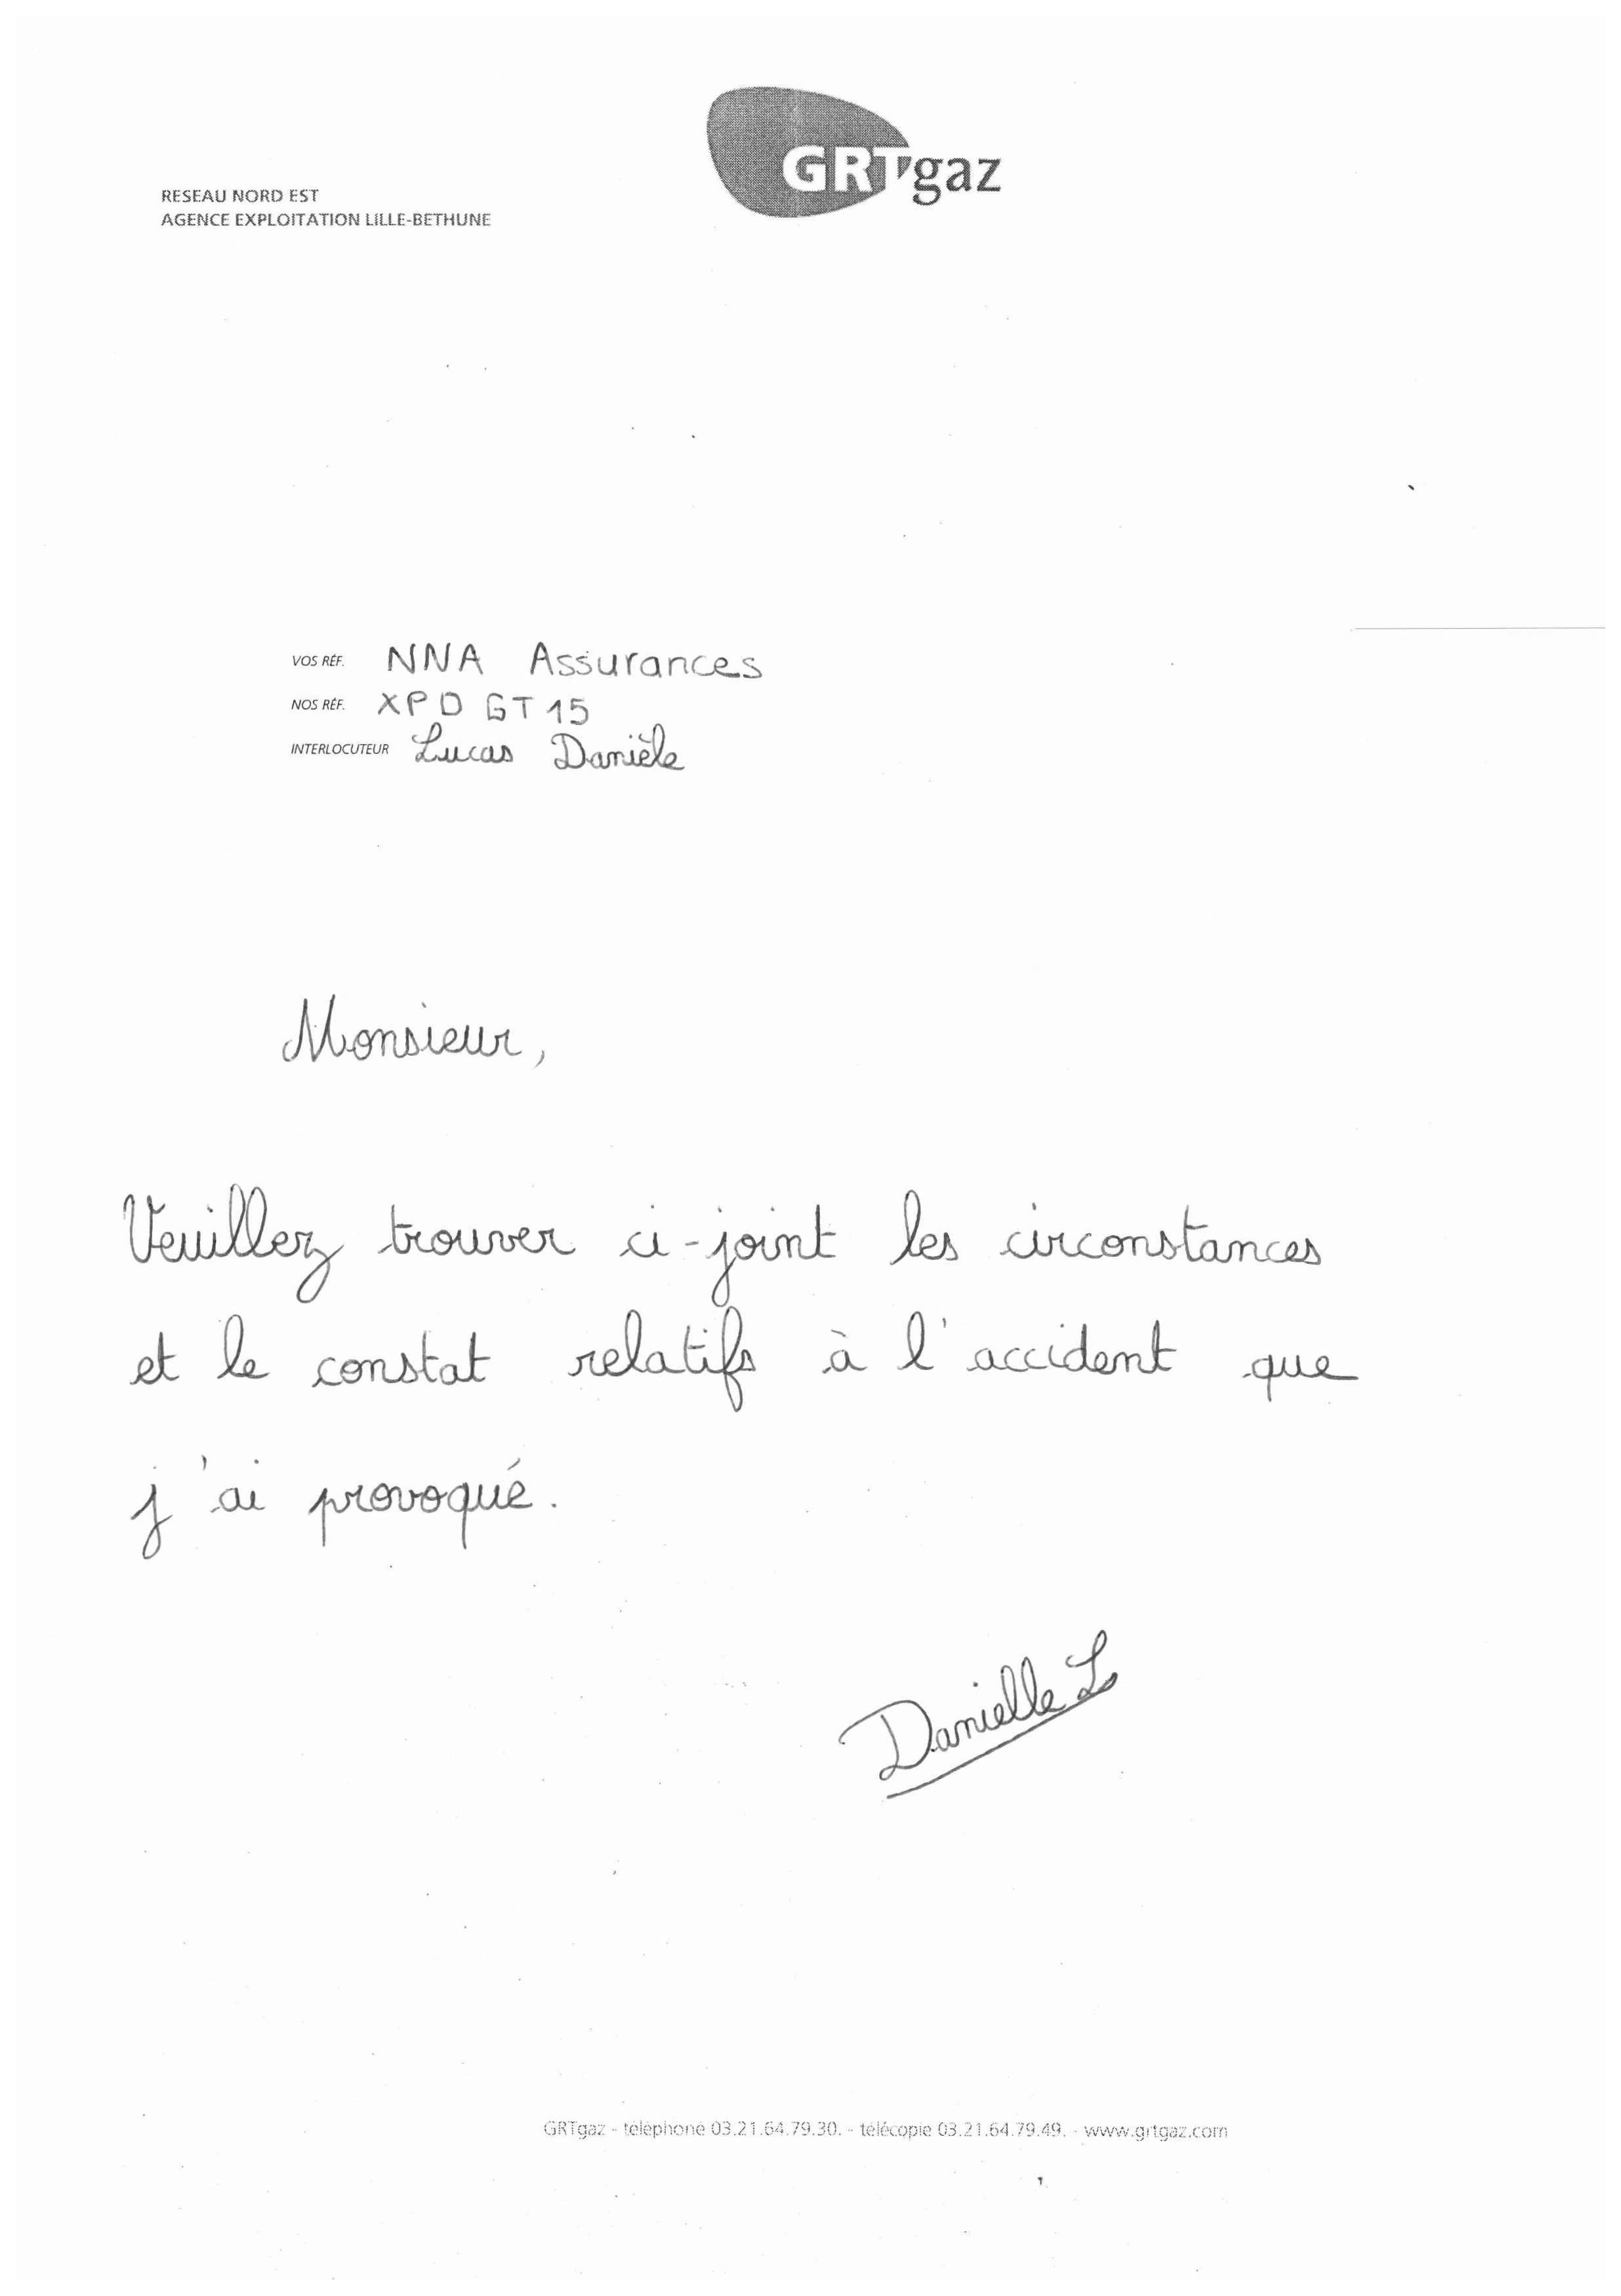 GRTgaz
RESEAU NORD EST
AGENCE EXPLOITATION LILLE-BETHUNE
VOS RÉF. NNA Assurances
NOS RÉF. XPD GT 15
INTERLOCUTEUR Lucas Danièle
Monsieur,
Veuillez trouver ci-joint les circonstances
et le constat relatifs à l'accident que
j'ai provoqué.
Danielle L
GRTgaz - téléphone 03.21.64.79.30. - télécopie 03.21.64.79.49. - www.grtgaz.com